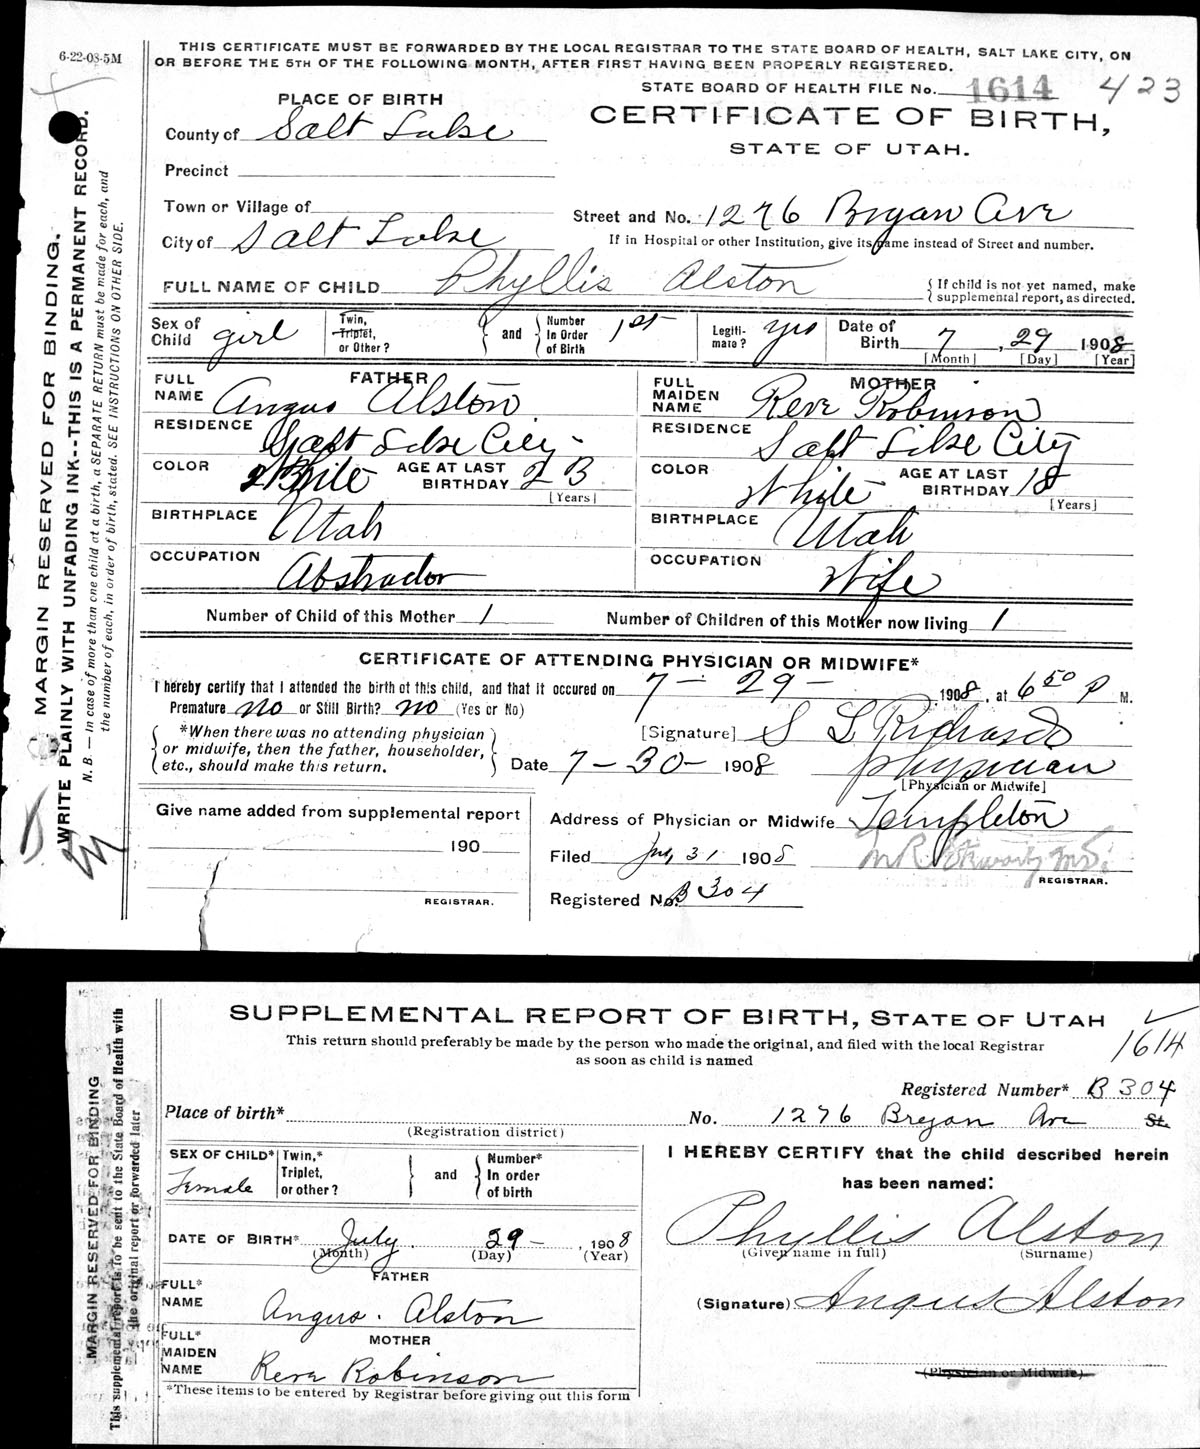 6-22-08-5M
THIS CERTIFICATE MUST BE FORWARDED BY THE LOCAL REGISTRAR TO THE STATE BOARD OF HEALTH, SALT LAKE CITY, ON
OR BEFORE THE 5TH OF THE FOLLOWING MONTH, AFTER FIRST HAVING BEEN PROPERLY REGISTERED.
STATE BOARD OF HEALTH FILE No. 1614 423
CERTIFICATE OF BIRTH,
STATE OF UTAH.
PLACE OF BIRTH
County of Salt Lake
Precinct
Town or Village of
City of Salt Lake
Street and No. 1276 Bryan Ave
If in Hospital or other Institution, give its name instead of Street and number.
FULL NAME OF CHILD Phyllis Alston
{ If child is not yet named, make
{ supplemental report, as directed.
Sex of Child girl
Twin, Triplet, or Other?
and
Number In Order of Birth 1st
Legiti-mate? yes
Date of Birth 7, 29 1908
[Month] [Day] [Year]
FATHER
FULL NAME Angus Alston
RESIDENCE Salt Lake City
COLOR White AGE AT LAST BIRTHDAY 23
[Years]
BIRTHPLACE Utah
OCCUPATION Abstractor
MOTHER
FULL MAIDEN NAME Reve Robinson
RESIDENCE Salt Lake City
COLOR White AGE AT LAST BIRTHDAY 18
[Years]
BIRTHPLACE Utah
OCCUPATION Wife
Number of Child of this Mother 1 Number of Children of this Mother now living 1
CERTIFICATE OF ATTENDING PHYSICIAN OR MIDWIFE*
I hereby certify that I attended the birth of this child, and that it occured on 7 - 29 - 1908, at 6 50 P M.
Premature no or Still Birth? no (Yes or No)
*When there was no attending physician
or midwife, then the father, householder,
etc., should make this return.
[Signature] S L Richards
Date 7-30- 1908 physician
[Physician or Midwife]
Give name added from supplemental report
190
REGISTRAR.
Address of Physician or Midwife Templeton
Filed July 31 1908
REGISTRAR.
Registered No. B 304
MARGIN RESERVED FOR BINDING.
WRITE PLAINLY WITH UNFADING INK--THIS IS A PERMANENT RECORD.
N. B. — In case of more than one child at a birth, a SEPARATE RETURN must be made for each, and
the number of each, in order of birth, stated. SEE INSTRUCTIONS ON OTHER SIDE.
SUPPLEMENTAL REPORT OF BIRTH, STATE OF UTAH
1614
This return should preferably be made by the person who made the original, and filed with the local Registrar
as soon as child is named
Registered Number* B 304
Place of birth* No. 1276 Bryan Ave St.
(Registration district)
SEX OF CHILD* Female
Twin,* Triplet, or other?
and
Number* In order of birth
DATE OF BIRTH* July 29- , 1908
(Month) (Day) (Year)
FATHER
FULL* NAME Angus. Alston
MOTHER
FULL* MAIDEN NAME Reve Robinson
*These items to be entered by Registrar before giving out this form
I HEREBY CERTIFY that the child described herein
has been named:
Phyllis Alston
(Given name in full) (Surname)
(Signature) Angus Alston
(Physician or Midwife)
MARGIN RESERVED FOR BINDING
This supplemental report is to be sent to the State Board of Health with
the original report or forwarded later